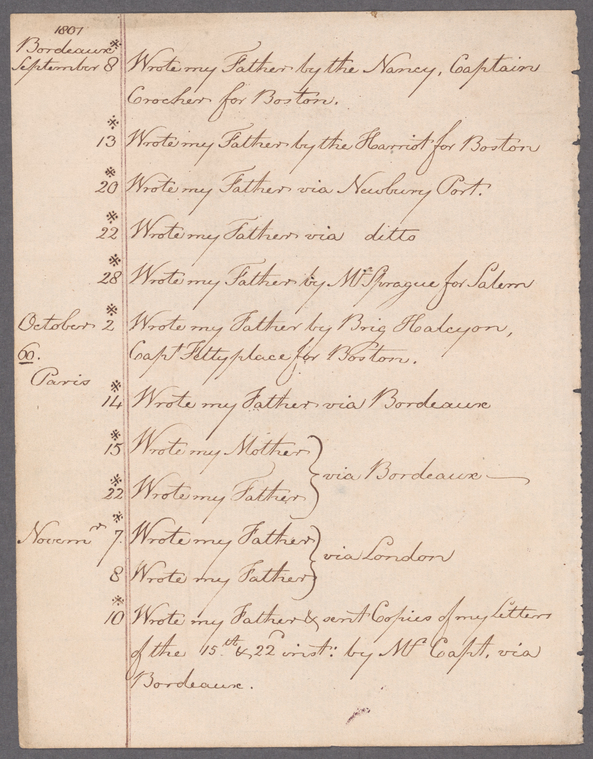 1801
Bordeaux ※
September 8 Wrote my Father by the Nancy, Captain
Crocher for Boston.
※
13 Wrote my Father by the Harriot for Boston
※
20 Wrote my Father via Newbury Port.
※
22 Wrote my Father via ditto
※
28 Wrote my Father by Mr Sprague for Salem
※
October 2 Wrote my Father by Brig Halcyon,
Capt Fettyplace for Boston.
Paris
※
14 Wrote my Father via Bordeaux
※
15 Wrote my Mother
} via Bordeaux —
※
22 Wrote my Father
※
Novemr 7. Wrote my Father
} via London
8 Wrote my Father
※
10 Wrote my Father & sent Copies of my Letters
of the 15th & 22d inst: by Mr Capt. via
Bordeaux.